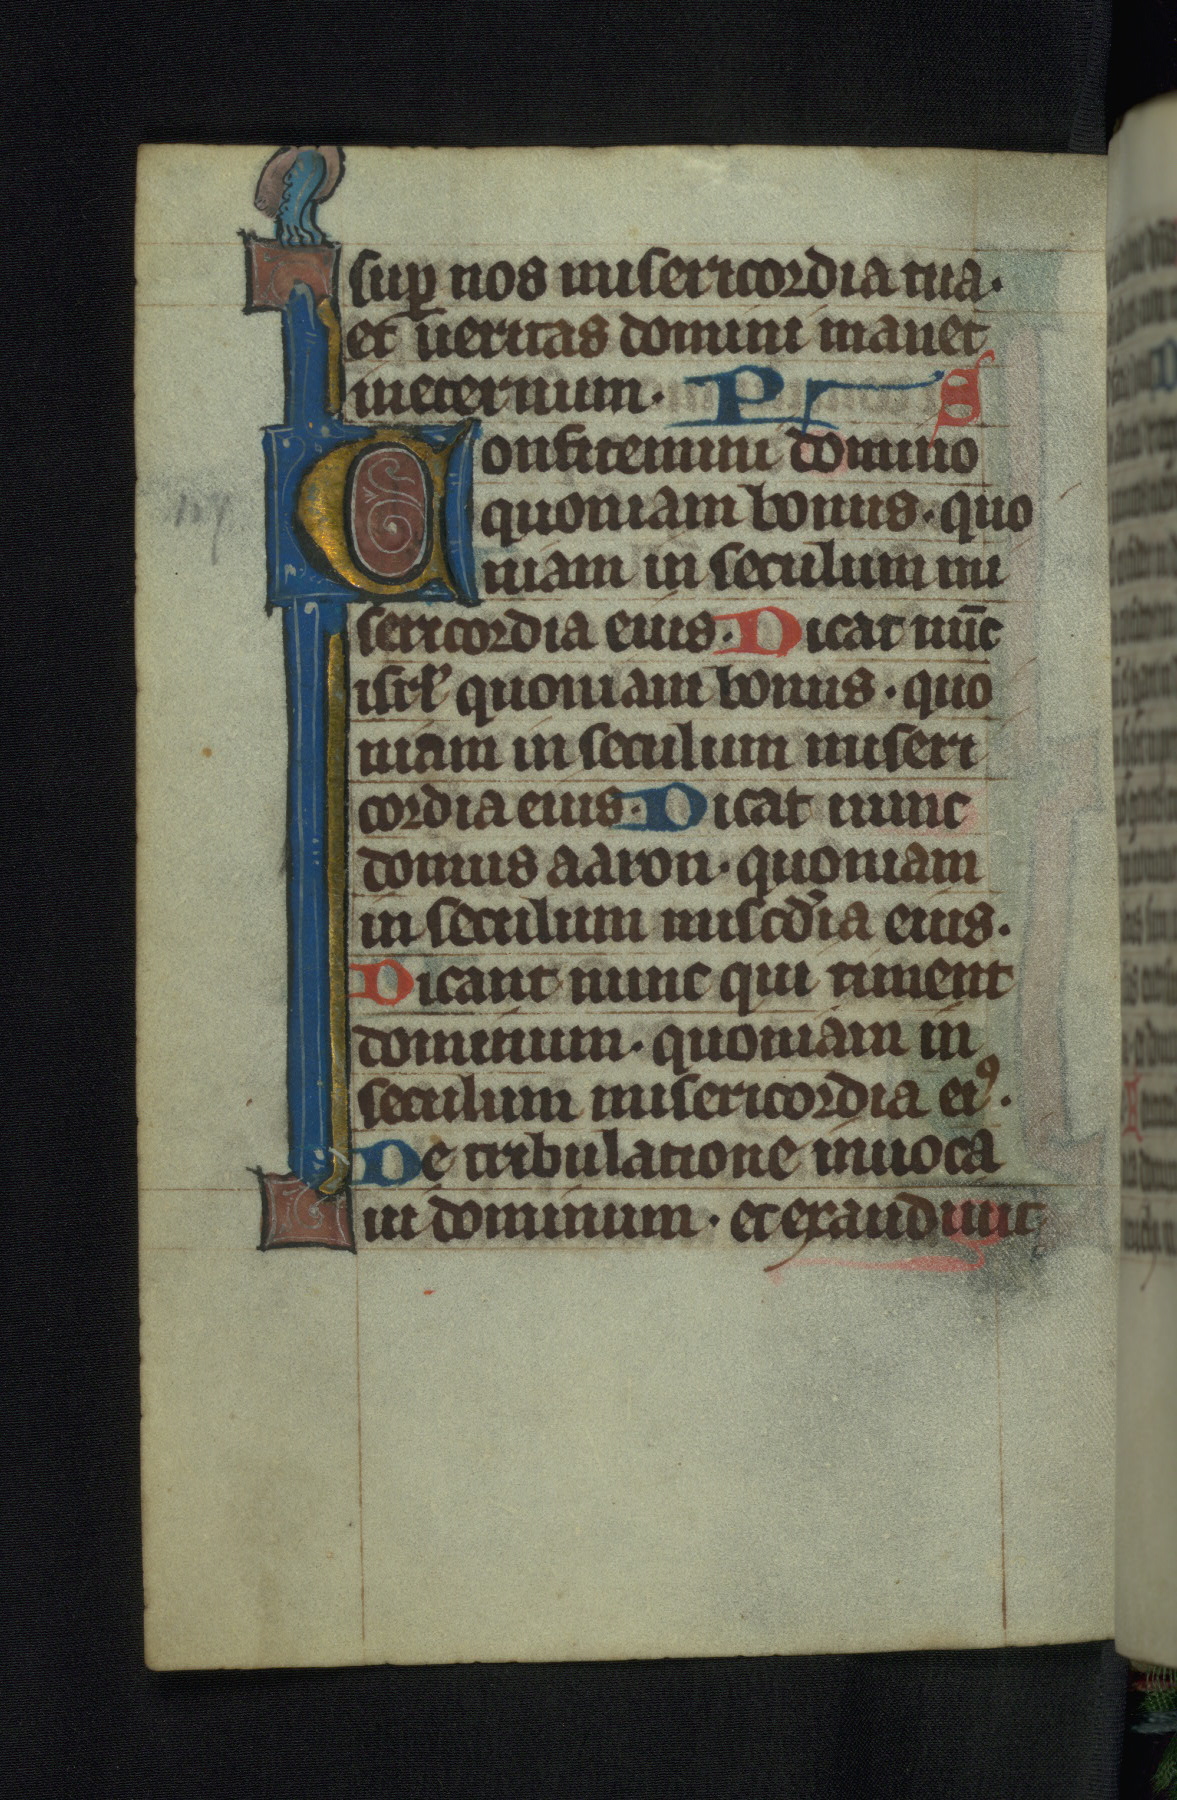 sup nos misericordia tua.
et ueritas domini manet
ineternum. Ps
Confitemini domino
quoniam bonus. quo
niam in seculum mi
sericordia eius. Dicat nūc
isrl' quoniam bonus. quo
niam in seculum miseri
cordia eius. Dicat nunc
domus aaron. quoniam
in seculum miscdia eius.
Dicant nunc qui timent
dominum. quoniam in
seculum misericordia eiꝰ.
De tribulatione inuoca
ui dominum. et exaudiuit